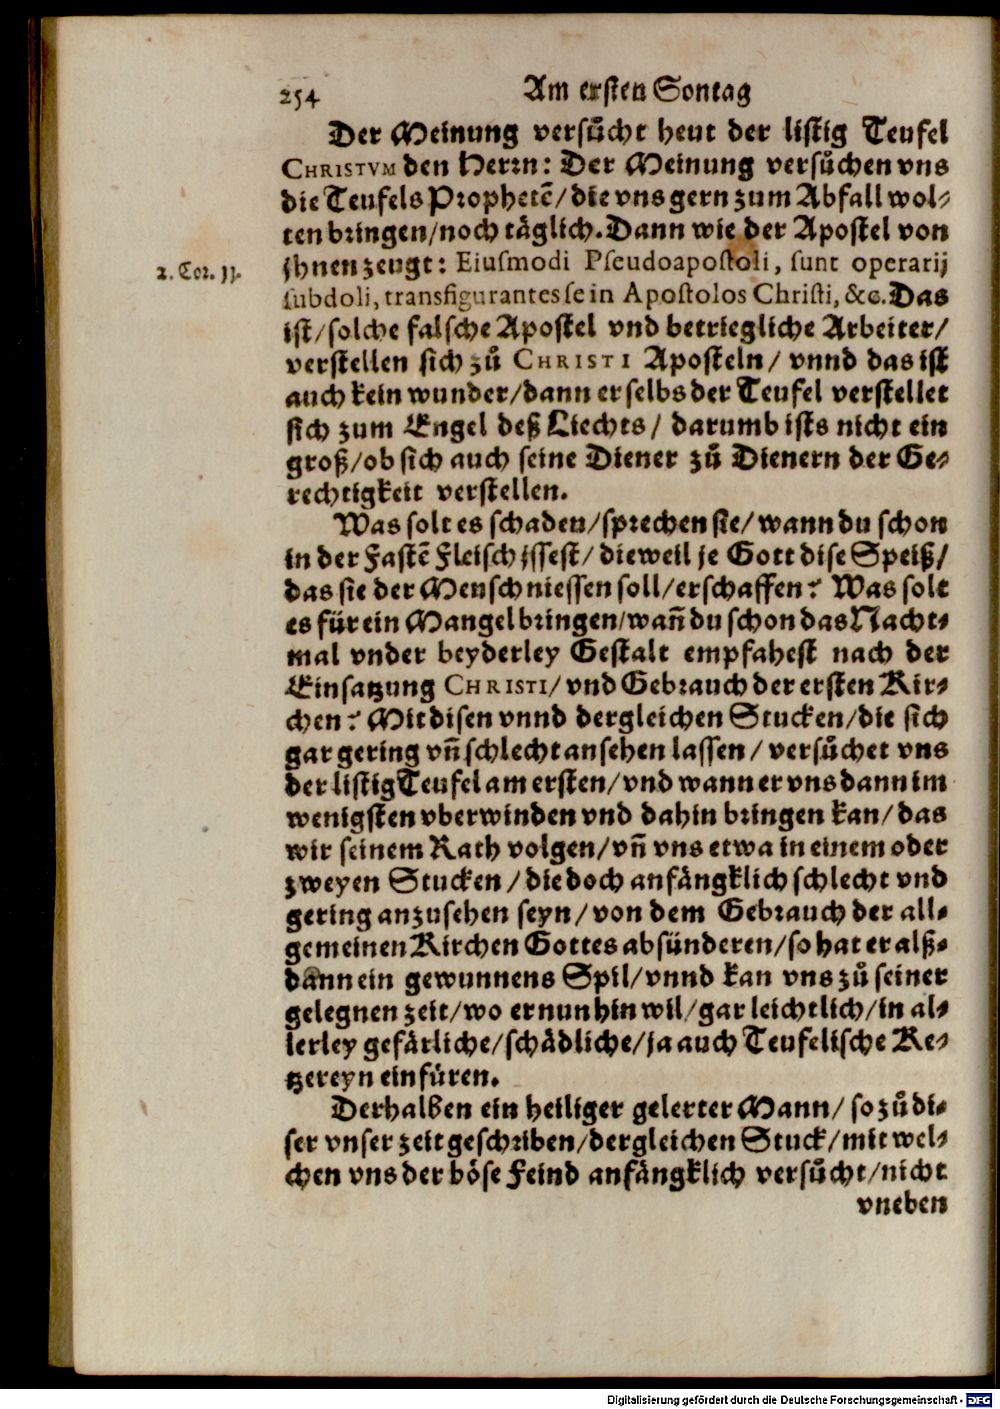 254 Am ersten Sontag
Der Meinung versůcht heut der listig Teufel
CHRISTVM den Herrn: Der Meinung versůchen vns
die Teufels Prophetē/die vns gern zum Abfall wol⸗
ten bringen/noch täglich. Dann wie der Apostel von
2. Cor. 11.
jhnen zeugt: Eiusmodi Pseudoapostoli, sunt operarij
subdoli, transfigurantes se in Apostolos Christi, &c. Das
ist/solche falsche Apostel vnd betriegliche Arbeiter/
verstellen sich zů CHRISTI Aposteln/ vnnd das ist
auch kein wunder/dann er selbs der Teufel verstellet
sich zum Engel deß Liechts/ darumb ists nicht ein
groß/ob sich auch seine Diener zů Dienern der Ge⸗
rechtigkeit verstellen.
Was solt es schaden/sprechen sie/wann du schon
in der Fastē Fleisch jssest/ dieweil je Gott dise Speiß/
das sie der Mensch niessen soll/erschaffen? Was solt
es für ein Mangel bringen/wañ du schon das Nacht⸗
mal vnder beyderley Gestalt empfahest nach der
Einsatzung CHRISTI/ vnd Gebrauch der ersten Kir⸗
chen? Mit disen vnnd dergleichen Stucken/die sich
gar gering vñ schlecht ansehen lassen/ versůchet vns
der listig Teufel am ersten/vnd wann er vns dann im
wenigsten vberwinden vnd dahin bringen kan/das
wir seinem Rath volgen/vñ vns etwa in einem oder
zweyen Stucken/die doch anfängklich schlecht vnd
gering anzusehen seyn/von dem Gebrauch der all⸗
gemeinen Kirchen Gottes absünderen/so hat er alß⸗
dann ein gewunnens Spil/vnnd kan vns zů seiner
gelegnen zeit/wo er nun hin wil/gar leichtlich/in al⸗
lerley gefärliche/schädliche/ja auch Teufelische Ke⸗
tzereyn einfüren.
Derhalben ein heiliger gelerter Mann/ so zů di⸗
ser vnser zeit geschriben/dergleichen Stuck/mit wel⸗
chen vns der böse Feind anfängklich versůcht/nicht
vneben
Digitalisierung gefördert durch die Deutsche Forschungsgemeinschaft - DFG